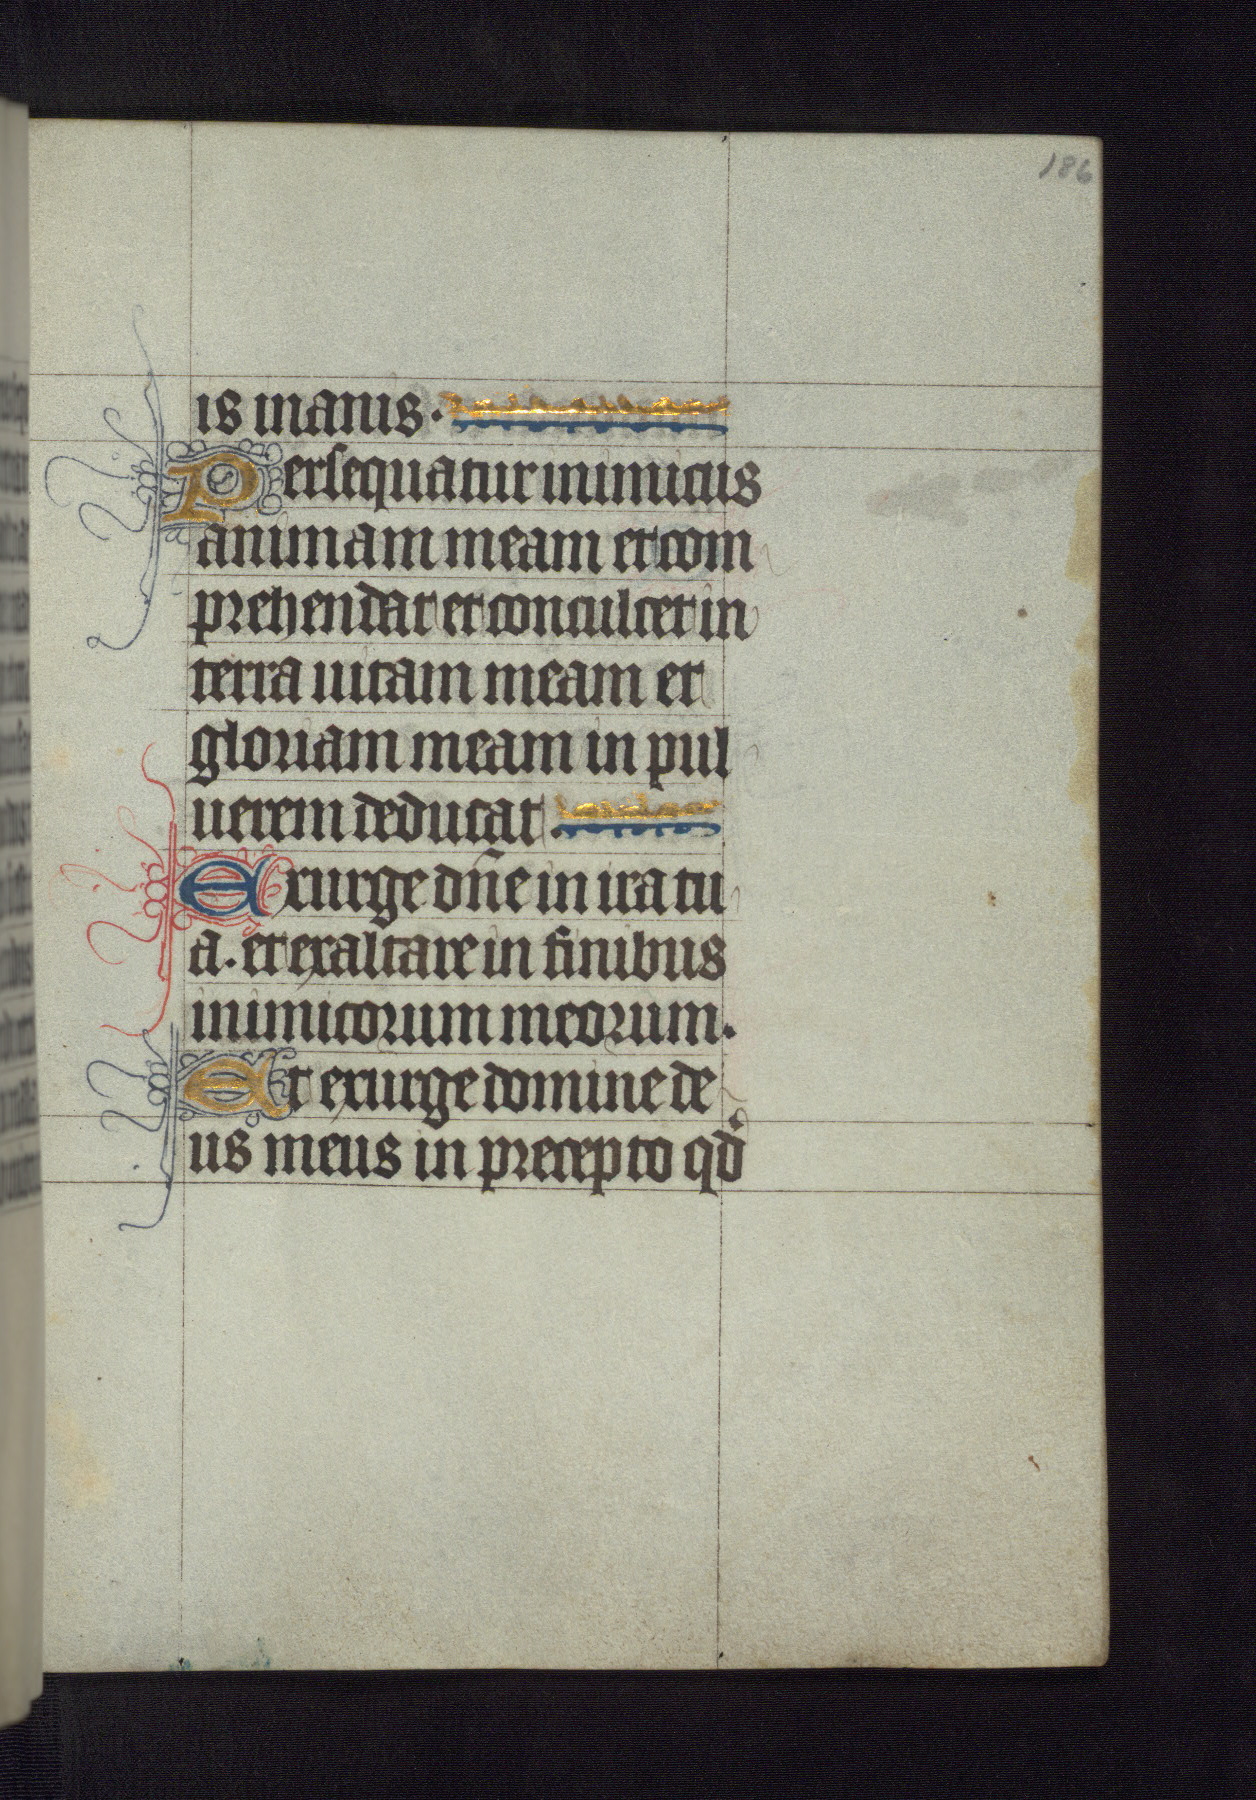 186
is inanis.
Persequatur inimicus
animam meam et com
prehendat et conculcet in
terra uitam meam et
gloriam meam in pul
uerem deducat.
Exurge dn̄e in ira tu
a. et exaltare in finibus
inimicorum meorum.
Et exurge domine de
us meus in precepto qd̕